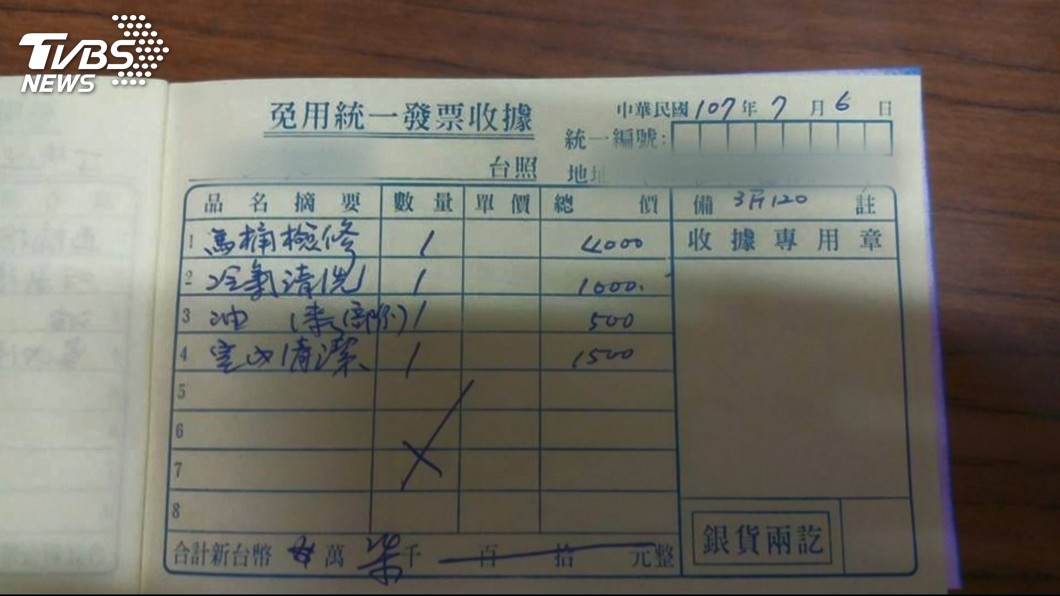 TVBS
NEWS
免用統一發票收據
中華民國107年7月6日
統一編號:
台照 地址
品名摘要 數量 單價 總價 備 3斤120 註
1 馬桶檢修 1 4000
收據專用章
2 冷氣清洗 1 1000.
3 油 1 500
4 室內清潔 1 1500
5
6
7
8
合計新台幣 萬 柒仟 百 拾 元整
銀貨兩訖